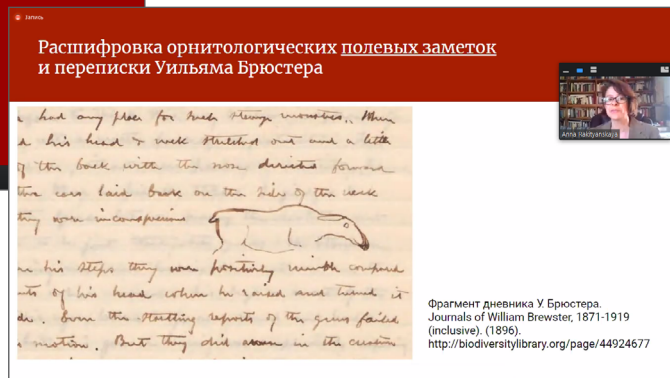 Запись
Расшифровка орнитологических полевых заметок
и переписки Уильяма Брюстера
Anna Rakityanskaya
had any place for such strange monsters. When
his head & neck stretched out and a little
of the back with the nose directed forward
ears laid back on the side of the neck
they were inconspicuous
his steps they were positively nimble compared
of his head when he raised and turned it
Even the startling reports of the guns failed
motion. But they did in the
Фрагмент дневника У. Брюстера.
Journals of William Brewster, 1871-1919
(inclusive). (1896).
http://biodiversitylibrary.org/page/44924677